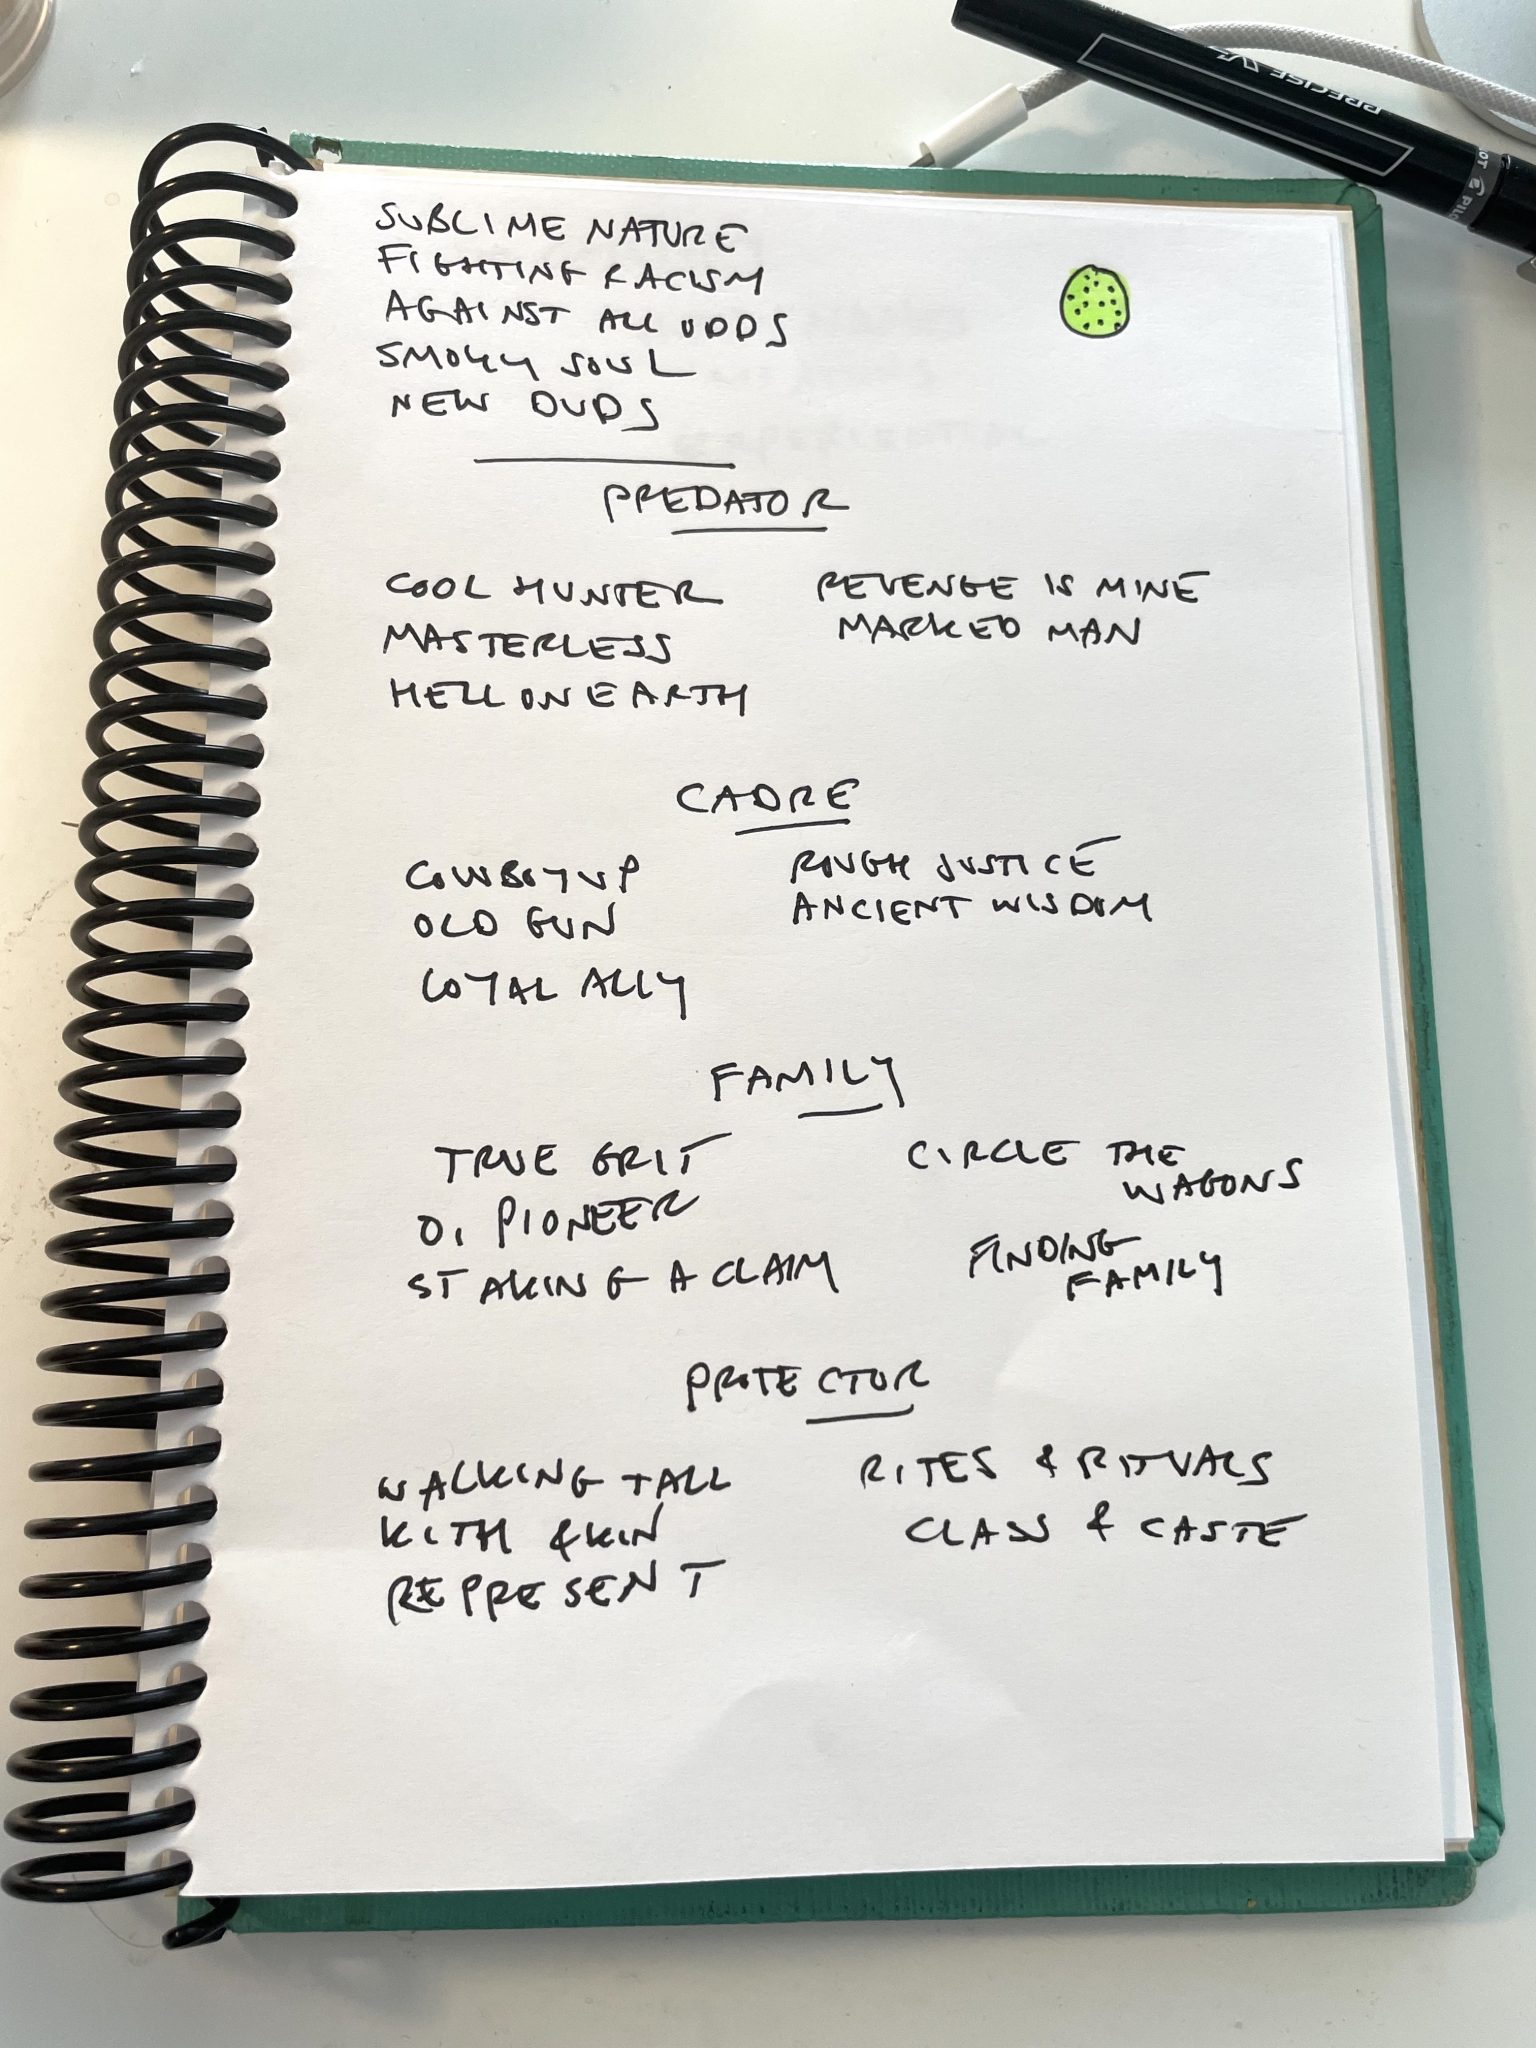 SUBLIME NATURE
FIGHTING RACISM
AGAINST ALL ODDS
SMOKY SOUL
NEW DUDS
PREDATOR
COOL HUNTER
MASTERLESS
HELL ON EARTH
REVENGE IS MINE
MARKED MAN
CADRE
COWBOY UP
OLD GUN
LOYAL ALLY
ROUGH JUSTICE
ANCIENT WISDOM
FAMILY
TRUE GRIT
O, PIONEER
STAKING A CLAIM
CIRCLE THE
WAGONS
FINDING
FAMILY
PROTECTOR
WALKING TALL
KITH & KIN
REPRESENT
RITES & RITUALS
CLASS & CASTE
PRECISE V5
PILOT